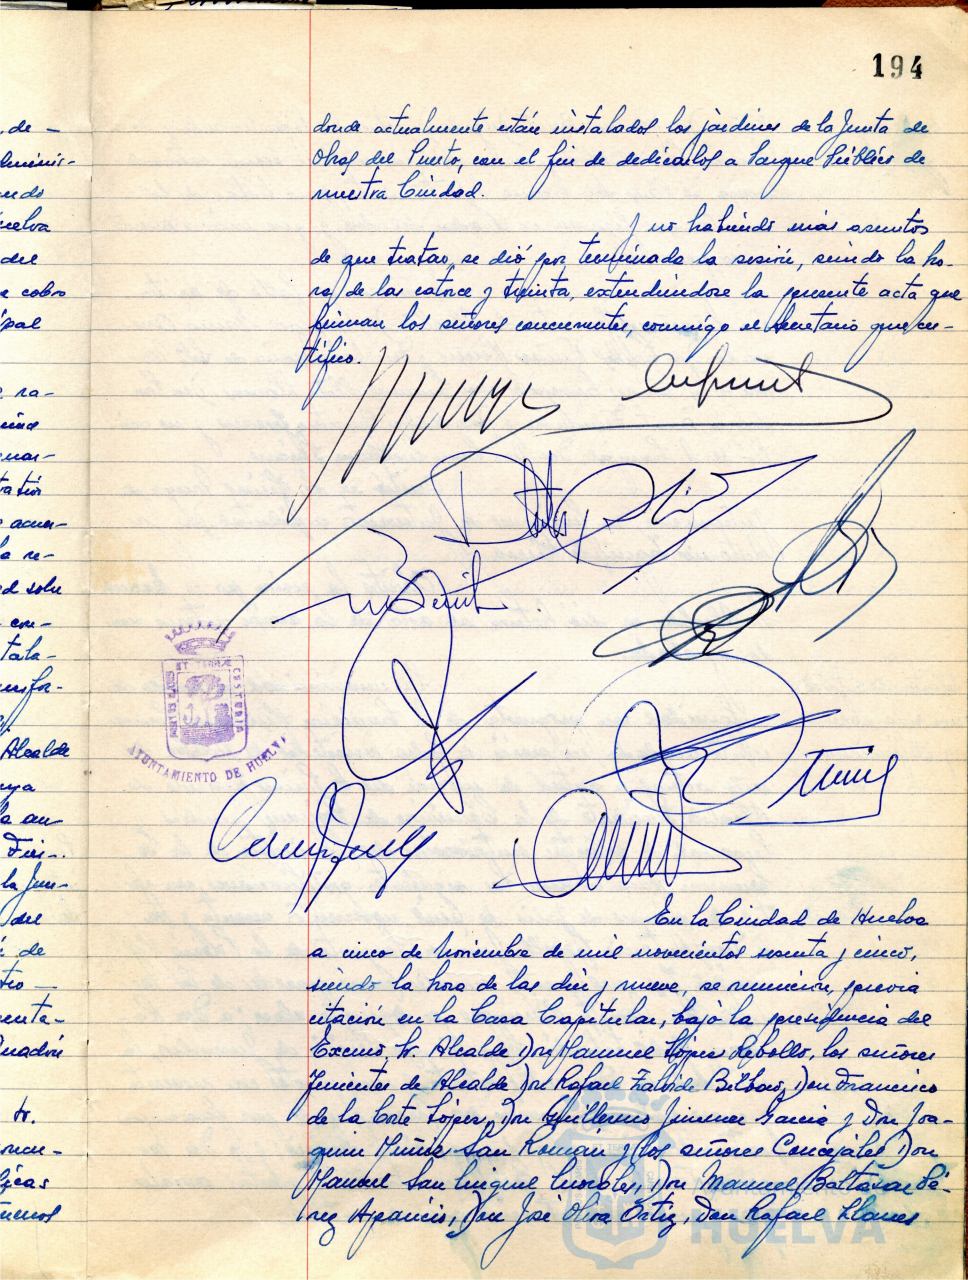 194
donde actualmente están instalados los jardines de la Junta de
Obras del Puerto, con el fin de dedicarlos a Parque Público de
nuestra Ciudad.
Y no habiendo más asuntos
de que tratar, se dió por terminada la sesión, siendo la ho-
ra de las catorce y treinta, extendiéndose la presente acta que
firman los señores concurrentes, conmigo el Secretario que cer-
tifico.
ET TERRÆ
PORTUS MARIS
CUSTODIA
AYUNTAMIENTO DE HUELVA
En la Ciudad de Huelva
a cinco de Noviembre de mil novecientos sesenta y cinco,
siendo la hora de las diez y nueve, se reunieron, previa
citación en la Casa Capitular, bajo la presidencia del
Excmo. Sr. Alcalde Don Manuel López Rebollo, los señores
Tenientes de Alcalde Don Rafael Zalvide Bilbao, Don Francisco
de la Corte López, Don Guillermo Jimenez Garcia y Don Joa-
quin Muñiz San Román y los señores Concejales Don
Manuel San Miguel Morales, Don Manuel Baltasar Pé-
rez Aparicio, Don José Oliva Ortiz, Don Rafael Llanes
HUELVA
de -
ndo
del
e cobro
ra-
acuer-
la re-
con-
tala-
Alcalde
la Jun-
del
de
Sr.